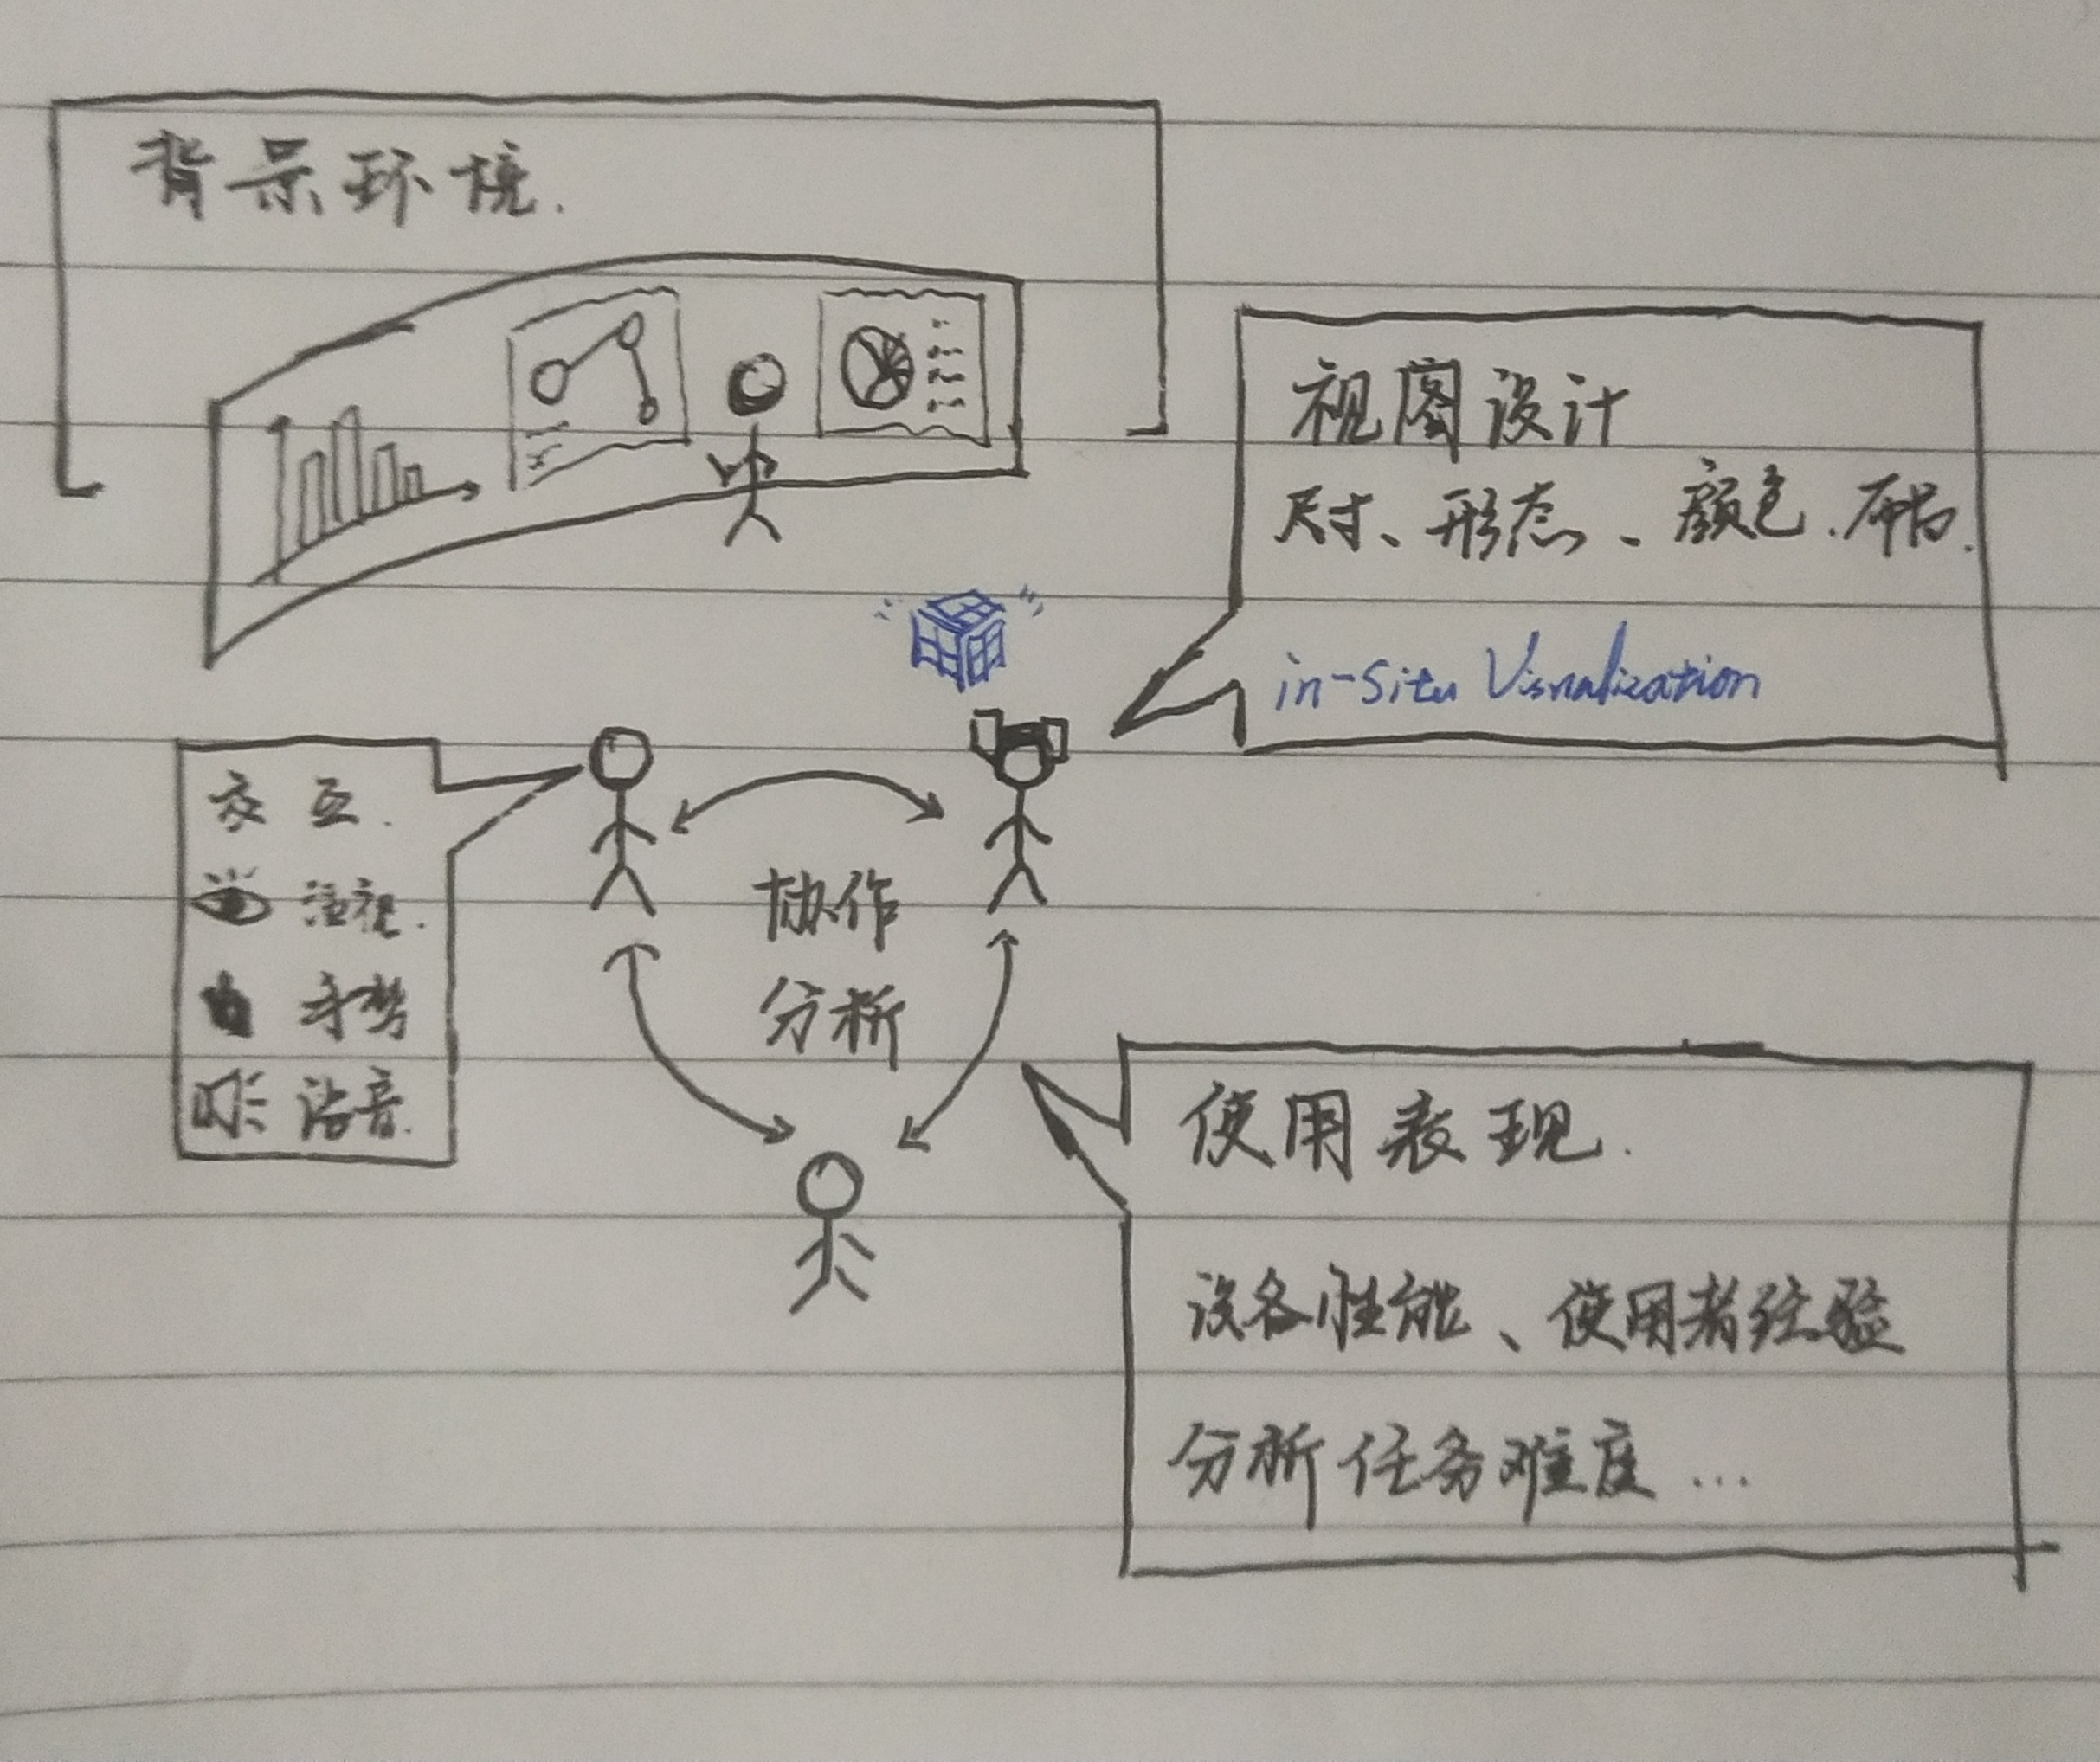 背景环境.
视图设计
尺寸、形态、颜色.布局.
in-situ Visualization
交互.
注视.
手势
语音.
协作
分析
使用表现.
设备性能、使用者经验
分析任务难度...